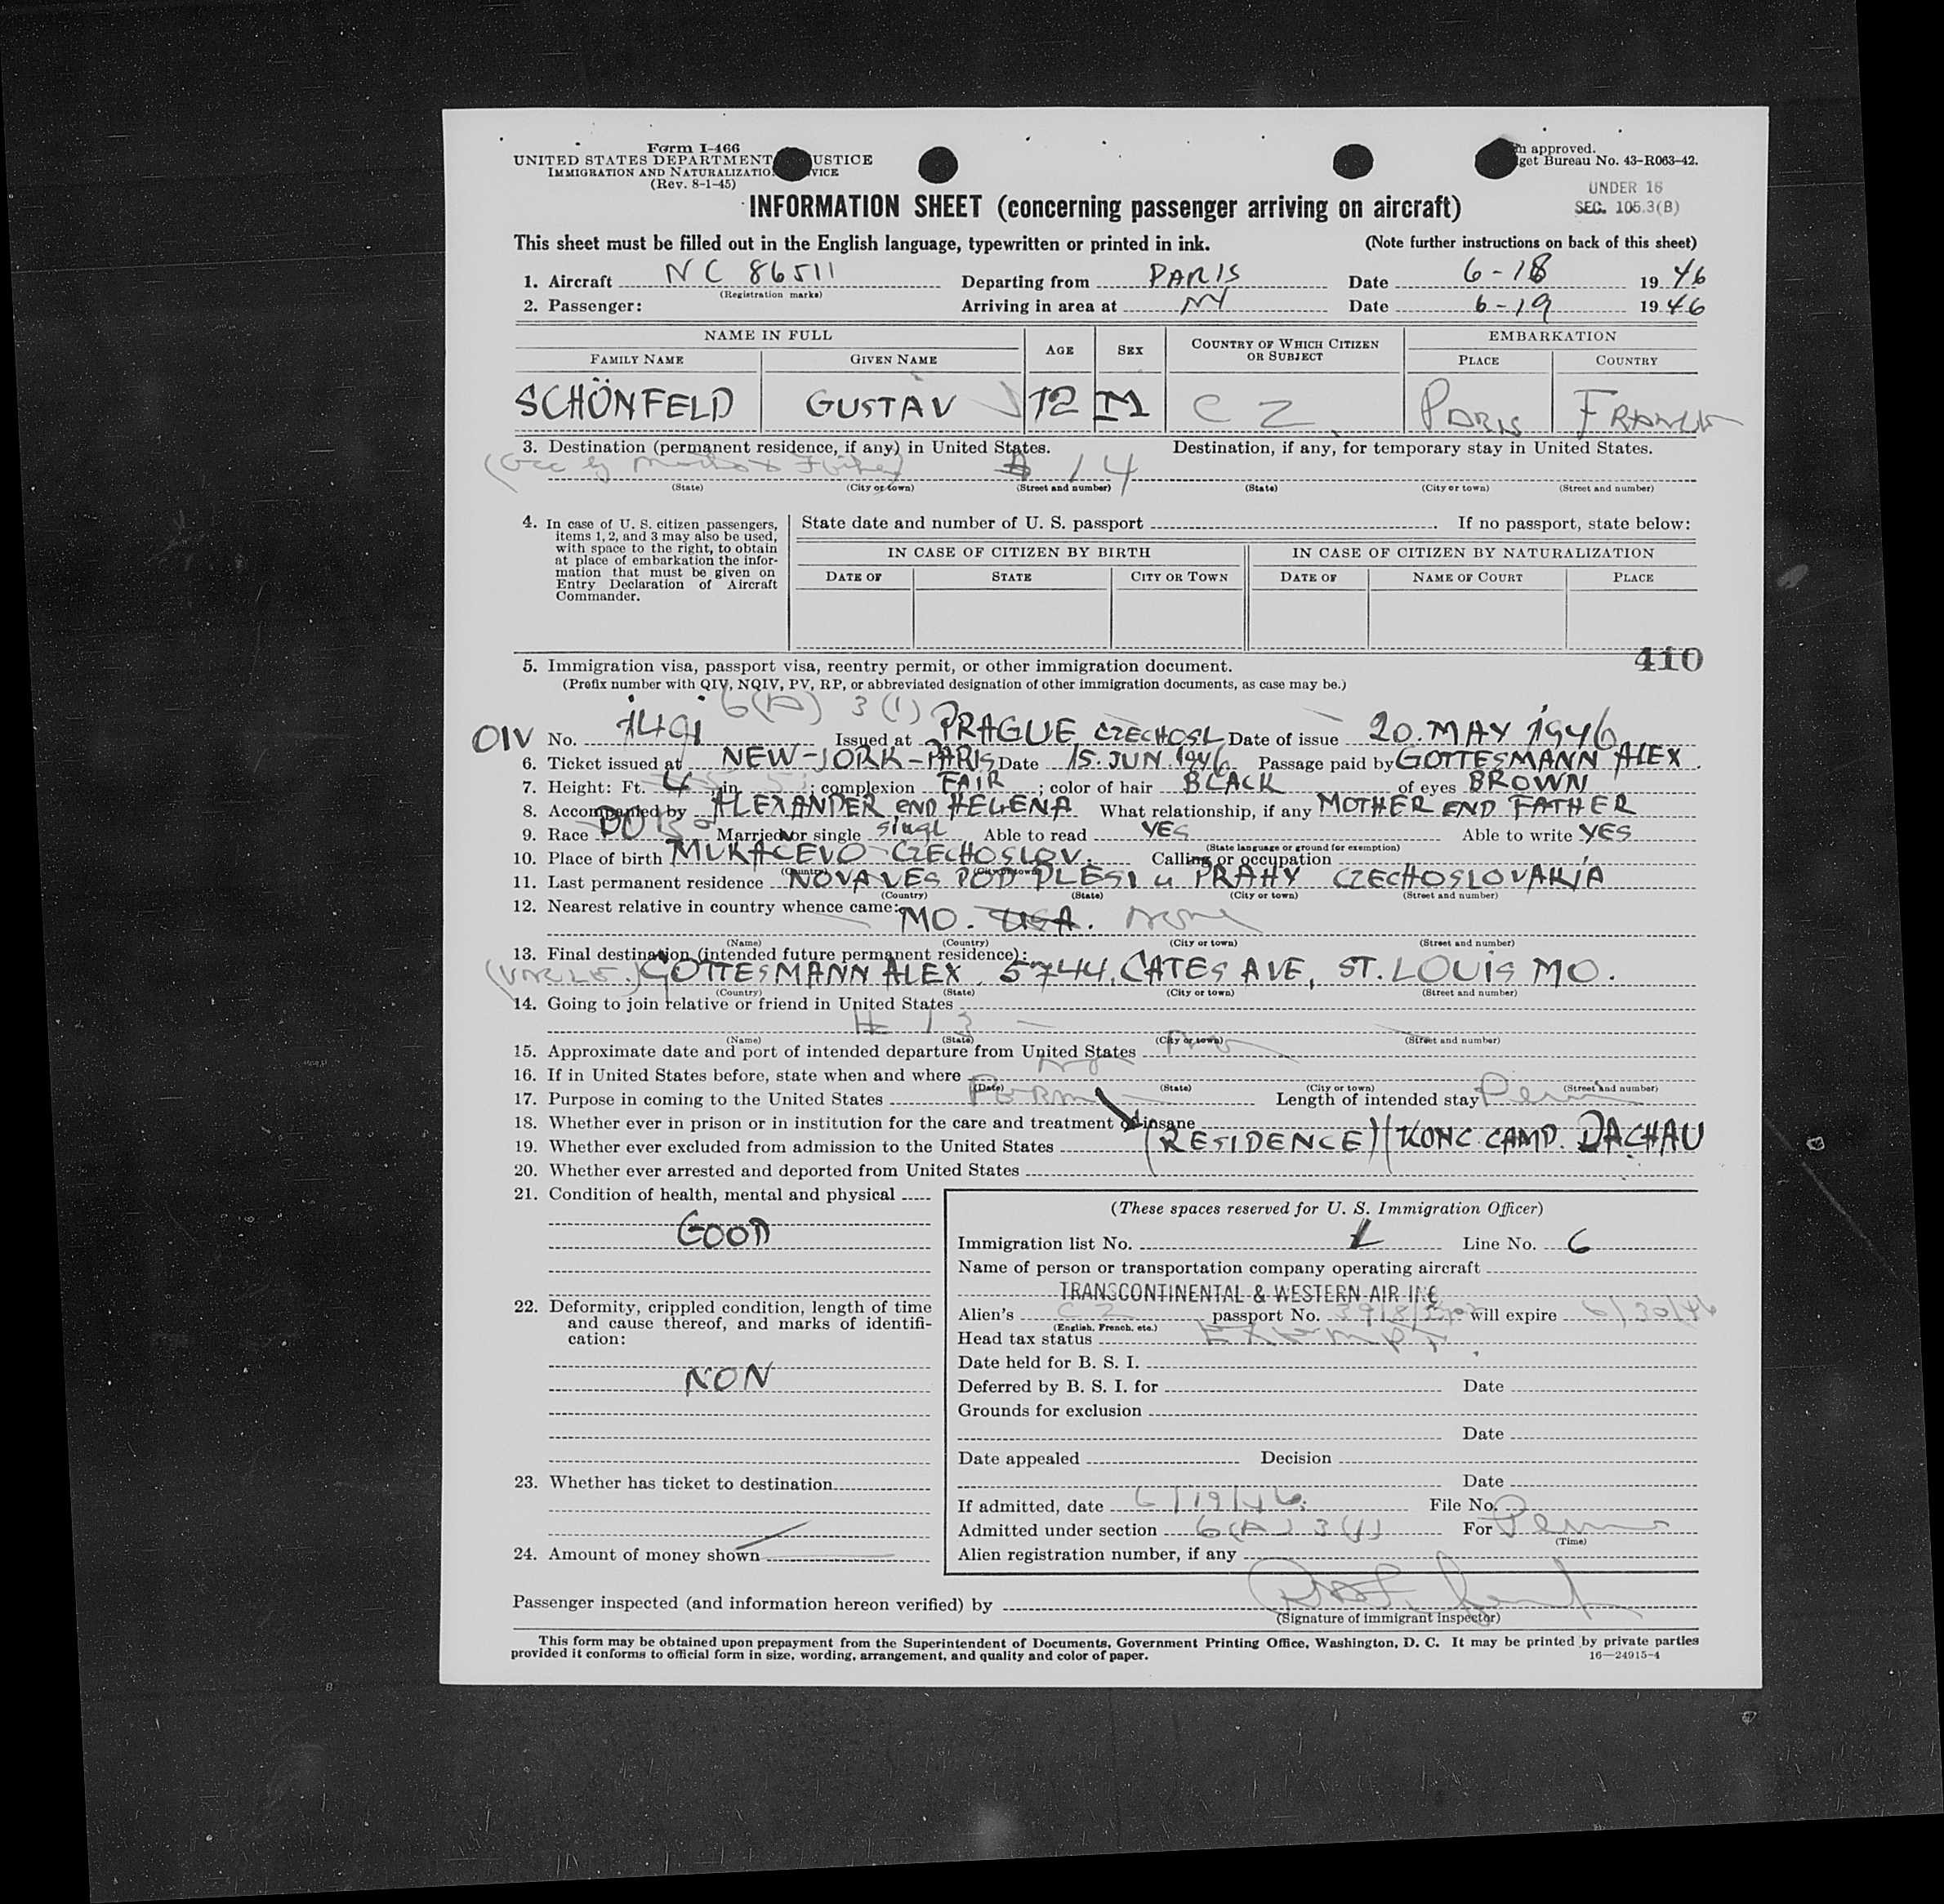 Form I-466
UNITED STATES DEPARTMENT USTICE
IMMIGRATION AND NATURALIZATIO VICE
(Rev. 8-1-45)
approved.
get Bureau No. 43-R063-42.
UNDER 16
SEC. 105.3(B)
INFORMATION SHEET (concerning passenger arriving on aircraft)
This sheet must be filled out in the English language, typewritten or printed in ink. (Note further instructions on back of this sheet)
1. Aircraft NC 86511 Departing from PARIS Date 6-18 1946
(Registration marks)
2. Passenger: Arriving in area at NY Date 6-19 1946
NAME IN FULL AGE SEX COUNTRY OF WHICH CITIZEN OR SUBJECT EMBARKATION
FAMILY NAME GIVEN NAME PLACE COUNTRY
SCHÖNFELD GUSTAV 12 M CZ PARIS FRANCE
3. Destination (permanent residence, if any) in United States. Destination, if any, for temporary stay in United States.
# 14
(State) (City or town) (Street and number) (State) (City or town) (Street and number)
4. In case of U. S. citizen passengers, items 1, 2, and 3 may also be used, with space to the right, to obtain at place of embarkation the information that must be given on Entry Declaration of Aircraft Commander.
State date and number of U. S. passport . If no passport, state below:
IN CASE OF CITIZEN BY BIRTH IN CASE OF CITIZEN BY NATURALIZATION
DATE OF STATE CITY OR TOWN DATE OF NAME OF COURT PLACE
410
5. Immigration visa, passport visa, reentry permit, or other immigration document.
(Prefix number with QIV, NQIV, PV, RP, or abbreviated designation of other immigration documents, as case may be.)
6(A) 3(1)
QIV No. 1491 Issued at PRAGUE CZECHOSL Date of issue 20. MAY 1946
6. Ticket issued at NEW-JORK-PARIS Date 15. JUN. 1946 Passage paid by GOTTESMANN ALEX.
7. Height: Ft. 4 in. ; complexion FAIR ; color of hair BLACK of eyes BROWN
8. Accompanied by ALEXANDER END HELENA What relationship, if any MOTHER END FATHER
9. Race Married or single singl Able to read YES Able to write YES
(State language or ground for exemption)
10. Place of birth MUKACEVO CZECHOSLOV. Calling or occupation
(Country) (City or town)
11. Last permanent residence NOVA VES POD PLESI u PRAHY CZECHOSLOVAKIA
(Country) (State) (City or town) (Street and number)
12. Nearest relative in country whence came: MO. USA. None
(Name) (Country) (City or town) (Street and number)
13. Final destination (intended future permanent residence):
(UNCLE.) GOTTESMANN ALEX. 5744, CATES AVE, ST. LOUIS MO.
(Country) (State) (City or town) (Street and number)
14. Going to join relative or friend in United States
# 13
(Name) (State) (City or town) (Street and number)
15. Approximate date and port of intended departure from United States No
16. If in United States before, state when and where No
(Date) (State) (City or town) (Street and number)
17. Purpose in coming to the United States PERM Length of intended stay Perm
18. Whether ever in prison or in institution for the care and treatment of insane
19. Whether ever excluded from admission to the United States (RESIDENCE) (KONC. CAMP. DACHAU
20. Whether ever arrested and deported from United States
21. Condition of health, mental and physical
GOOD
22. Deformity, crippled condition, length of time and cause thereof, and marks of identification:
NON
23. Whether has ticket to destination
24. Amount of money shown
(These spaces reserved for U. S. Immigration Officer)
Immigration list No. 1 Line No. 6
Name of person or transportation company operating aircraft
TRANSCONTINENTAL & WESTERN AIR INC
Alien's CZ passport No. will expire 6/30/46
(English, French, etc.)
Head tax status Exempt
Date held for B. S. I.
Deferred by B. S. I. for Date
Grounds for exclusion
Date
Date appealed Decision
Date
If admitted, date 6/19/46. File No.
Admitted under section 6(A) 3(1) For Perm
(Time)
Alien registration number, if any
Passenger inspected (and information hereon verified) by
(Signature of immigrant inspector)
This form may be obtained upon prepayment from the Superintendent of Documents, Government Printing Office, Washington, D. C. It may be printed by private parties
provided it conforms to official form in size, wording, arrangement, and quality and color of paper. 16—24915-4